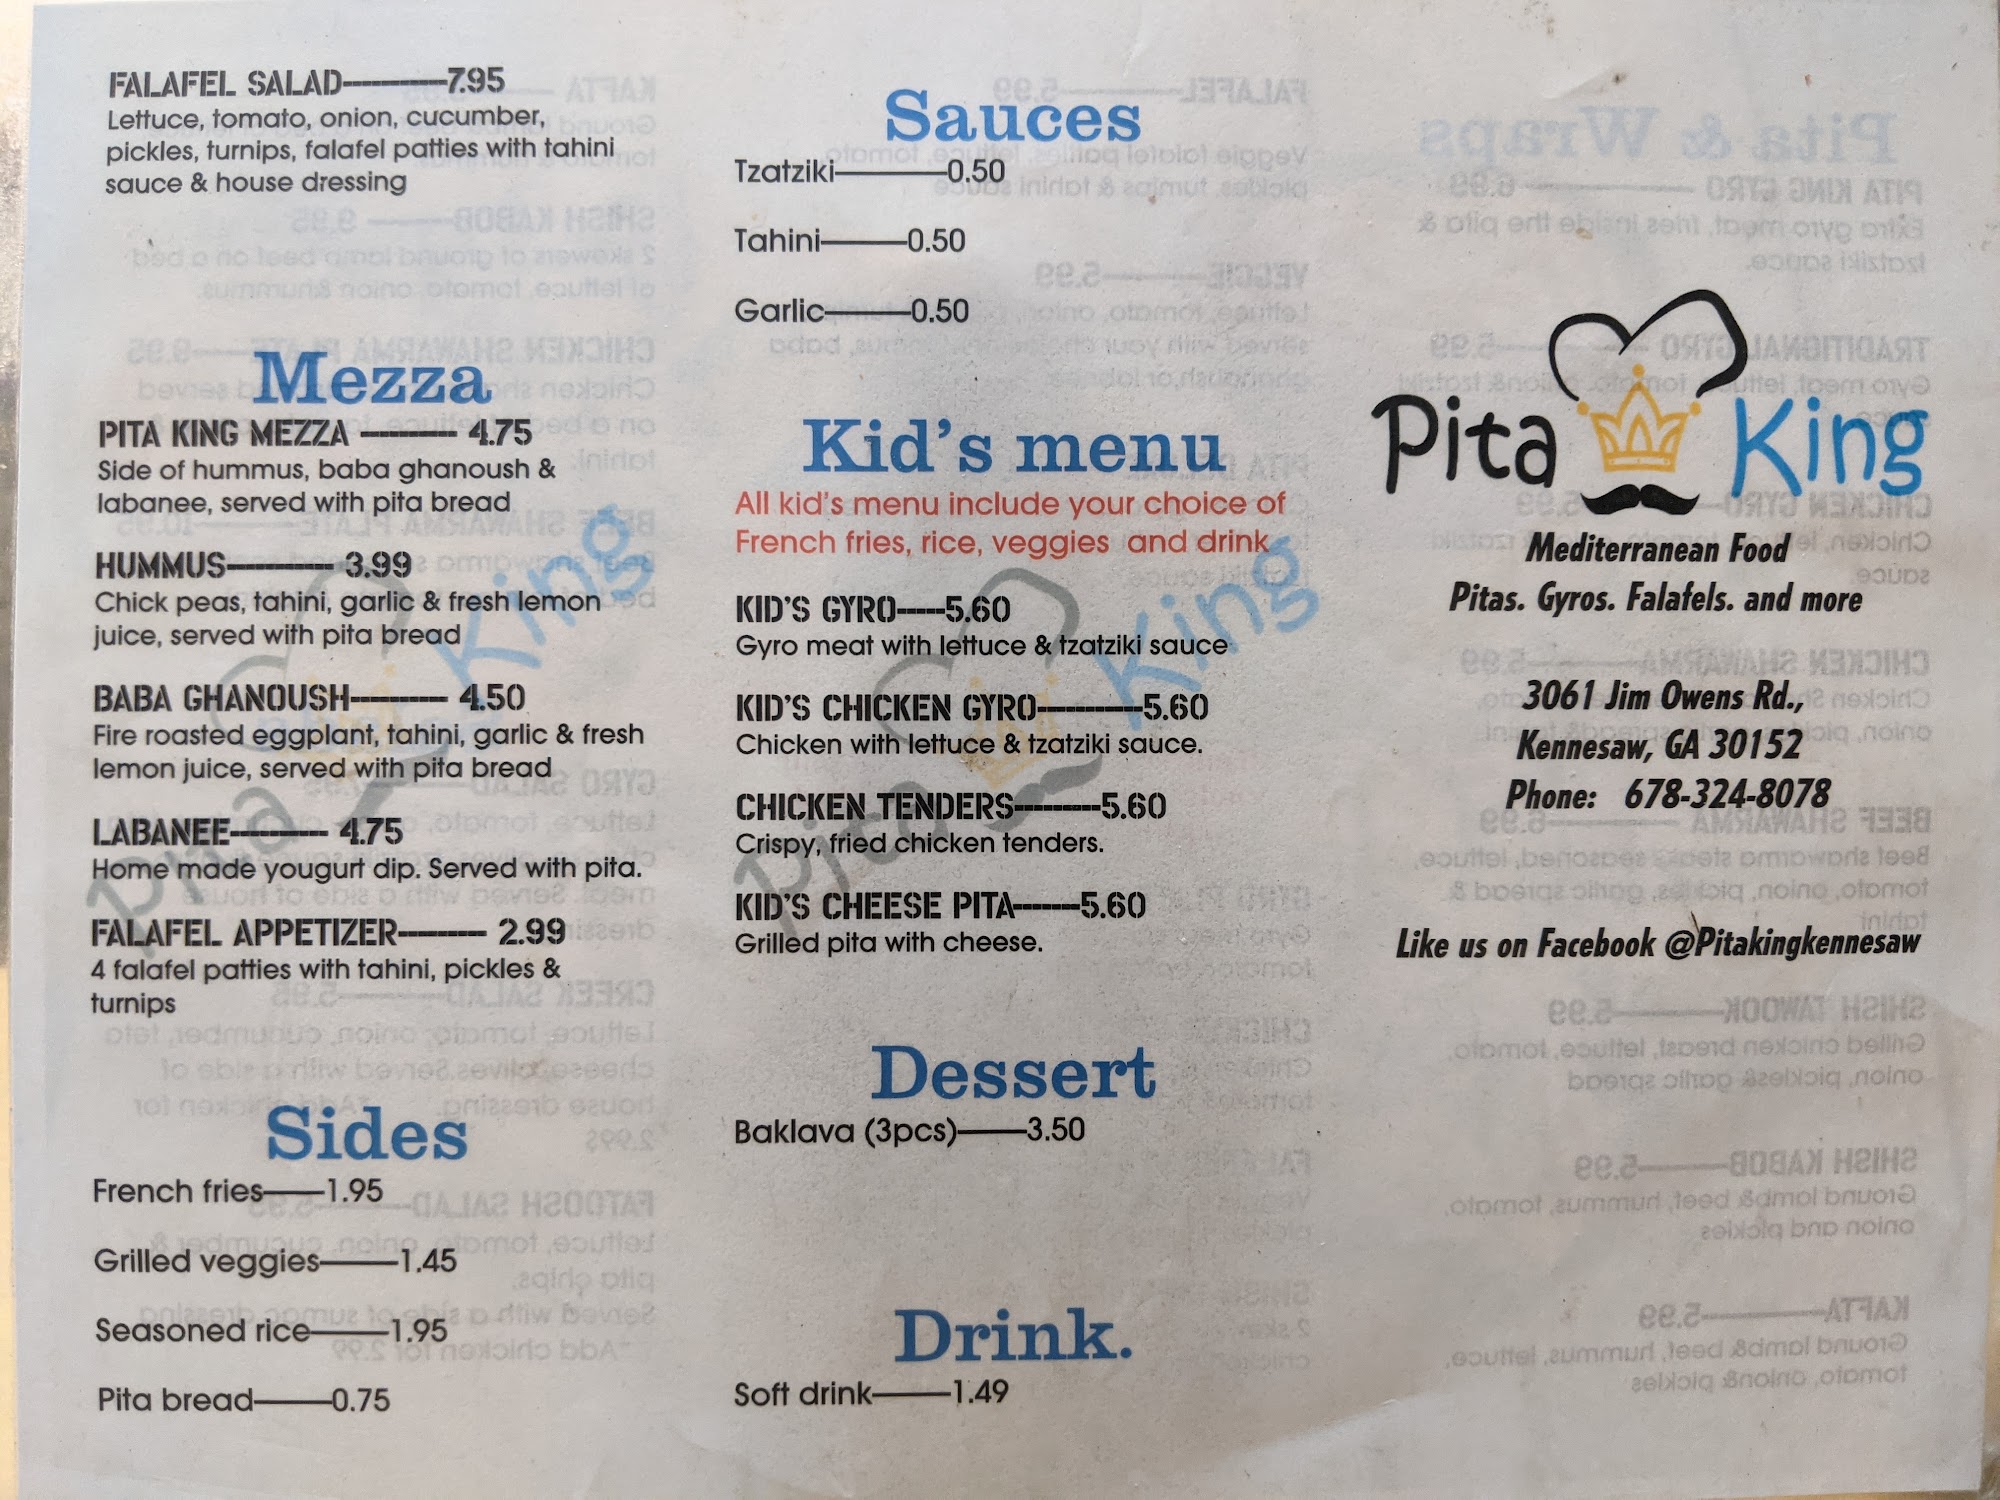 FALAFEL SALAD----------7.95
Lettuce, tomato, onion, cucumber,
pickles, turnips, falafel patties with tahini
sauce & house dressing
Mezza
PITA KING MEZZA --------- 4.75
Side of hummus, baba ghanoush &
labanee, served with pita bread
HUMMUS---------- 3.99
Chick peas, tahini, garlic & fresh lemon
juice, served with pita bread
BABA GHANOUSH--------- 4.50
Fire roasted eggplant, tahini, garlic & fresh
lemon juice, served with pita bread
LABANEE--------- 4.75
Home made yougurt dip. Served with pita.
FALAFEL APPETIZER-------- 2.99
4 falafel patties with tahini, pickles &
turnips
Sides
French fries——1.95
Grilled veggies——1.45
Seasoned rice——1.95
Pita bread——0.75
Sauces
Tzatziki———0.50
Tahini——0.50
Garlic——0.50
Kid's menu
All kid's menu include your choice of
French fries, rice, veggies and drink
KID'S GYRO-----5.60
Gyro meat with lettuce & tzatziki sauce
KID'S CHICKEN GYRO----------5.60
Chicken with lettuce & tzatziki sauce.
CHICKEN TENDERS--------5.60
Crispy, fried chicken tenders.
KID'S CHEESE PITA------5.60
Grilled pita with cheese.
Dessert
Baklava (3pcs)——3.50
Drink.
Soft drink——1.49
Pita King
Mediterranean Food
Pitas. Gyros. Falafels. and more
3061 Jim Owens Rd.,
Kennesaw, GA 30152
Phone: 678-324-8078
Like us on Facebook @Pitakingkennesaw